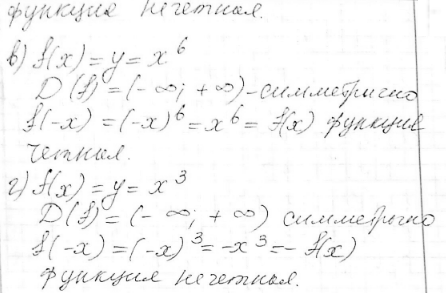 функция нечетная.
в) f(x) = y = x⁶
D(f) = (-∞; +∞) - симметрично
f(-x) = (-x)⁶ = x⁶ = f(x) функция
четная.
г) f(x) = y = x³
D(f) = (-∞; +∞) симметрично
f(-x) = (-x)³ = -x³ = - f(x)
функция нечетная.